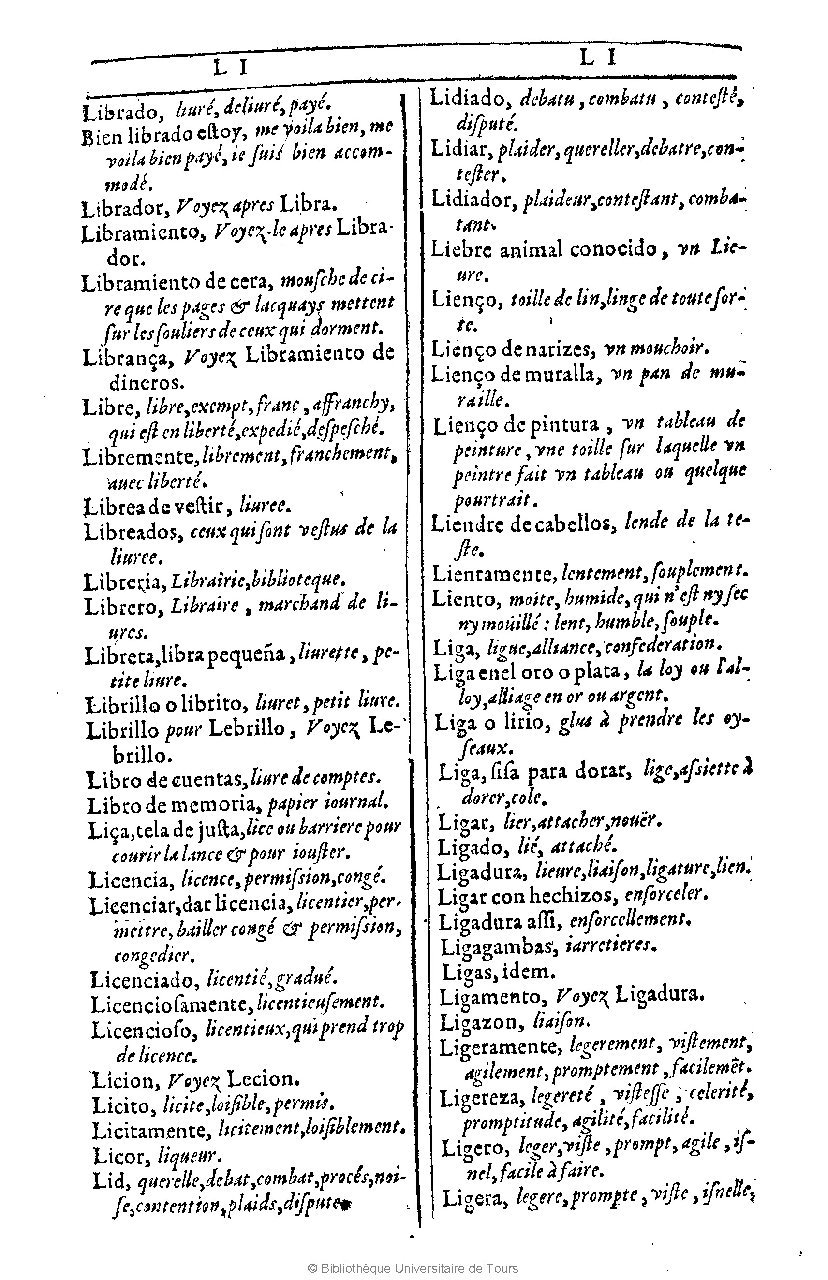 L I
Librado, liuré, deliuré, payé.
Bien librado eſtoy, me voila bien, me
voila bien payé, ie ſuis bien accom-
modé.
Librador, Voyez apres Libra.
Libramiento, Voyez-le apres Libra-
dor.
Libramiento de cera, mouſche de ci-
re que les pages & lacquays mettent
ſur les ſouliers de ceux qui dorment.
Librança, Voyez Libramiento de
dineros.
Libre, libre, exempt, franc, affranchy,
qui eſt en liberté, expedié, deſpeſché.
Libremente, librement, franchement,
auec liberté.
Librea de veſtir, liuree.
Libreados, ceux qui ſont veſtus de la
liuree.
Libreria, Librairie, biblioteque.
Librero, Libraire, marchand de li-
ures.
Libreta, libra pequeña, liurette, pe-
tite liure.
Librillo o librito, liuret, petit liure.
Librillo pour Lebrillo, Voyez Le-
brillo.
Libro de cuentas, liure de comptes.
Libro de memoria, papier iournal.
Liça, tela de juſta, lice ou barriere pour
courir la lance & pour iouſter.
Licencia, licence, permiſsion, congé.
Licenciar, dar licencia, licentier, per-
mettre, bailler congé & permiſsion,
congedier.
Licenciado, licentié, gradué.
Licencioſamente, licentieuſement.
Licencioſo, licentieux, qui prend trop
de licence.
Licion, Voyez Lecion.
Licito, licite, loiſible, permis.
Licitamente, licitement, loiſiblement.
Licor, liqueur.
Lid, querelle, debat, combat, procés, noi-
ſe, contention, plaids, diſpute.
L I
Lidiado, debatu, combatu, conteſté,
diſputé.
Lidiar, plaider, quereller, debatre, con-
teſter.
Lidiador, plaideur, conteſtant, comba-
tant.
Liebre animal conocido, vn Lie-
ure.
Lienço, toille de lin, linge de toute ſor-
te.
Lienço de narizes, vn mouchoir.
Lienço de muralla, vn pan de mu-
raille.
Lienço de pintura, vn tableau de
peinture, vne toille ſur laquelle vn
peintre fait vn tableau ou quelque
pourtrait.
Liendre de cabellos, lende de la te-
ſte.
Lientamente, lentement, ſouplement.
Liento, moite, humide, qui n'eſt ny ſec
ny moüillé : lent, humble, ſouple.
Liga, ligue, alliance, confederation.
Liga en el oro o plata, la loy ou l'al-
loy, alliage en or ou argent.
Liga o lirio, glus à prendre les oy-
ſeaux.
Liga, ſiſa para dorar, lige, aſsiette à
dorer, cole.
Ligar, lier, attacher, nouër.
Ligado, lié, attaché.
Ligadura, lieure, liaiſon, ligature, lien.
Ligar con hechizos, enſorceler.
Ligadura aſſi, enſorcellement.
Ligagambas, iarretieres.
Ligas, idem.
Ligamento, Voyez Ligadura.
Ligazon, liaiſon.
Ligeramente, legerement, viſtement,
agilement, promptement, facilemēt.
Ligereza, legereté, viſteſſe, celerité,
promptitude, agilité, facilité.
Ligero, leger, viſte, prompt, agile, iſ-
nel, facile à faire.
Ligera, legere, prompte, viſte, iſnelle,
© Bibliothèque Universitaire de Tours